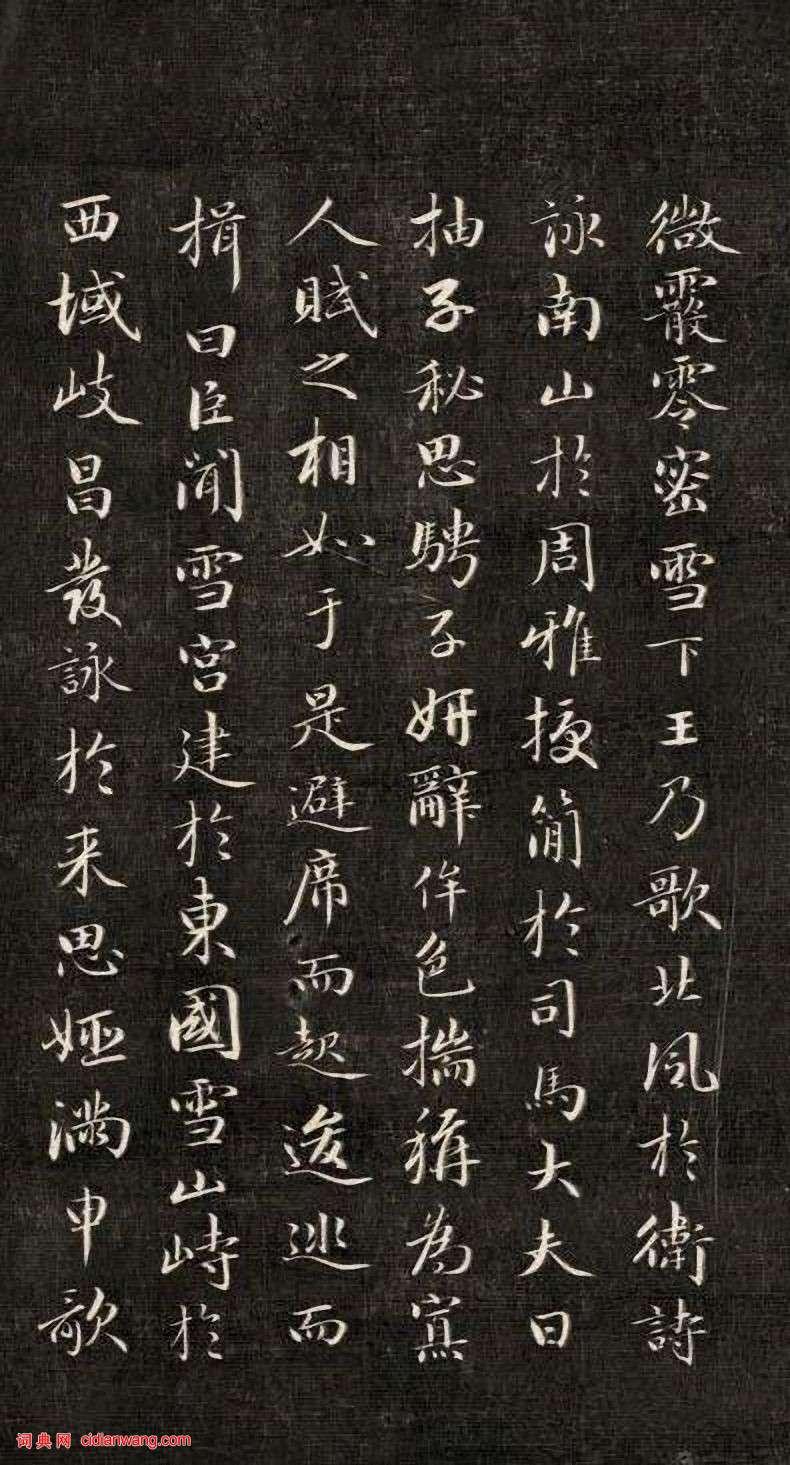 微霰零密雪下王乃歌北風於衛詩
詠南山於周雅授簡於司馬大夫曰
抽子秘思騁子妍辭侔色揣稱為寡
人賦之相如于是避席而起逡巡而
揖曰臣聞雪宮建於東國雪山峙於
西域岐昌發詠於来思姬滿申歌
词典网 cidianwang.com